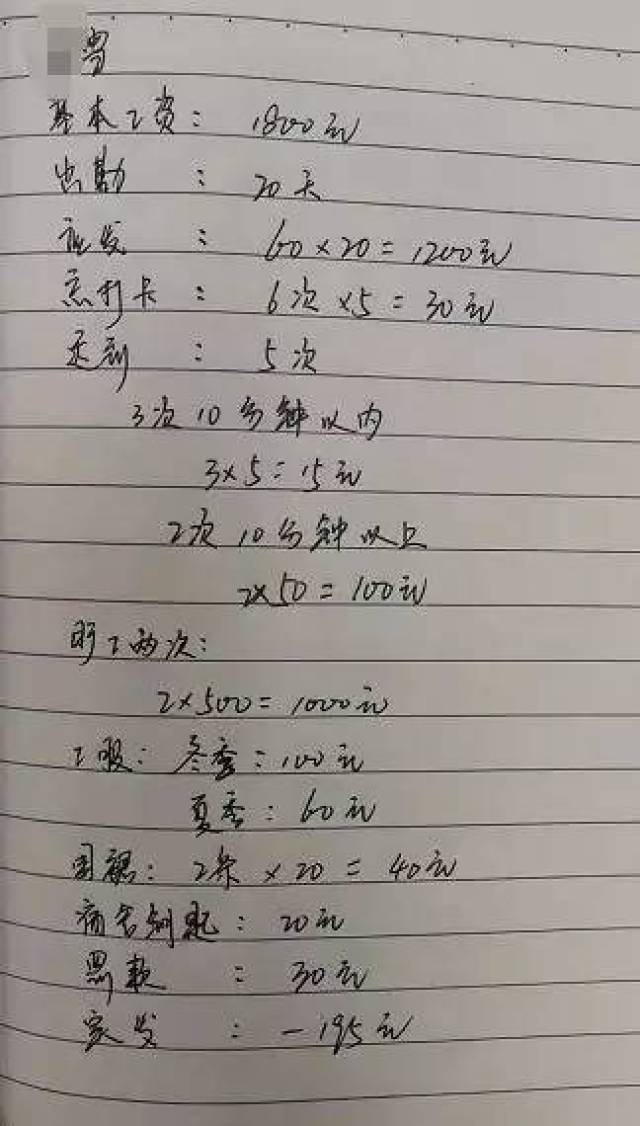 基本工资： 1800元
出勤 ： 20天
应发 ： 60×20=1200元
忘打卡 ： 6次×5=30元
迟到 ： 5次
3次10分钟以内
3×5=15元
2次10分钟以上
2×50=100元
旷工两次：
2×500=1000元
工服：冬季：100元
夏季：60元
围裙：2条×20=40元
宿舍
：20元
罚款 ：30元
实发 ：-195元